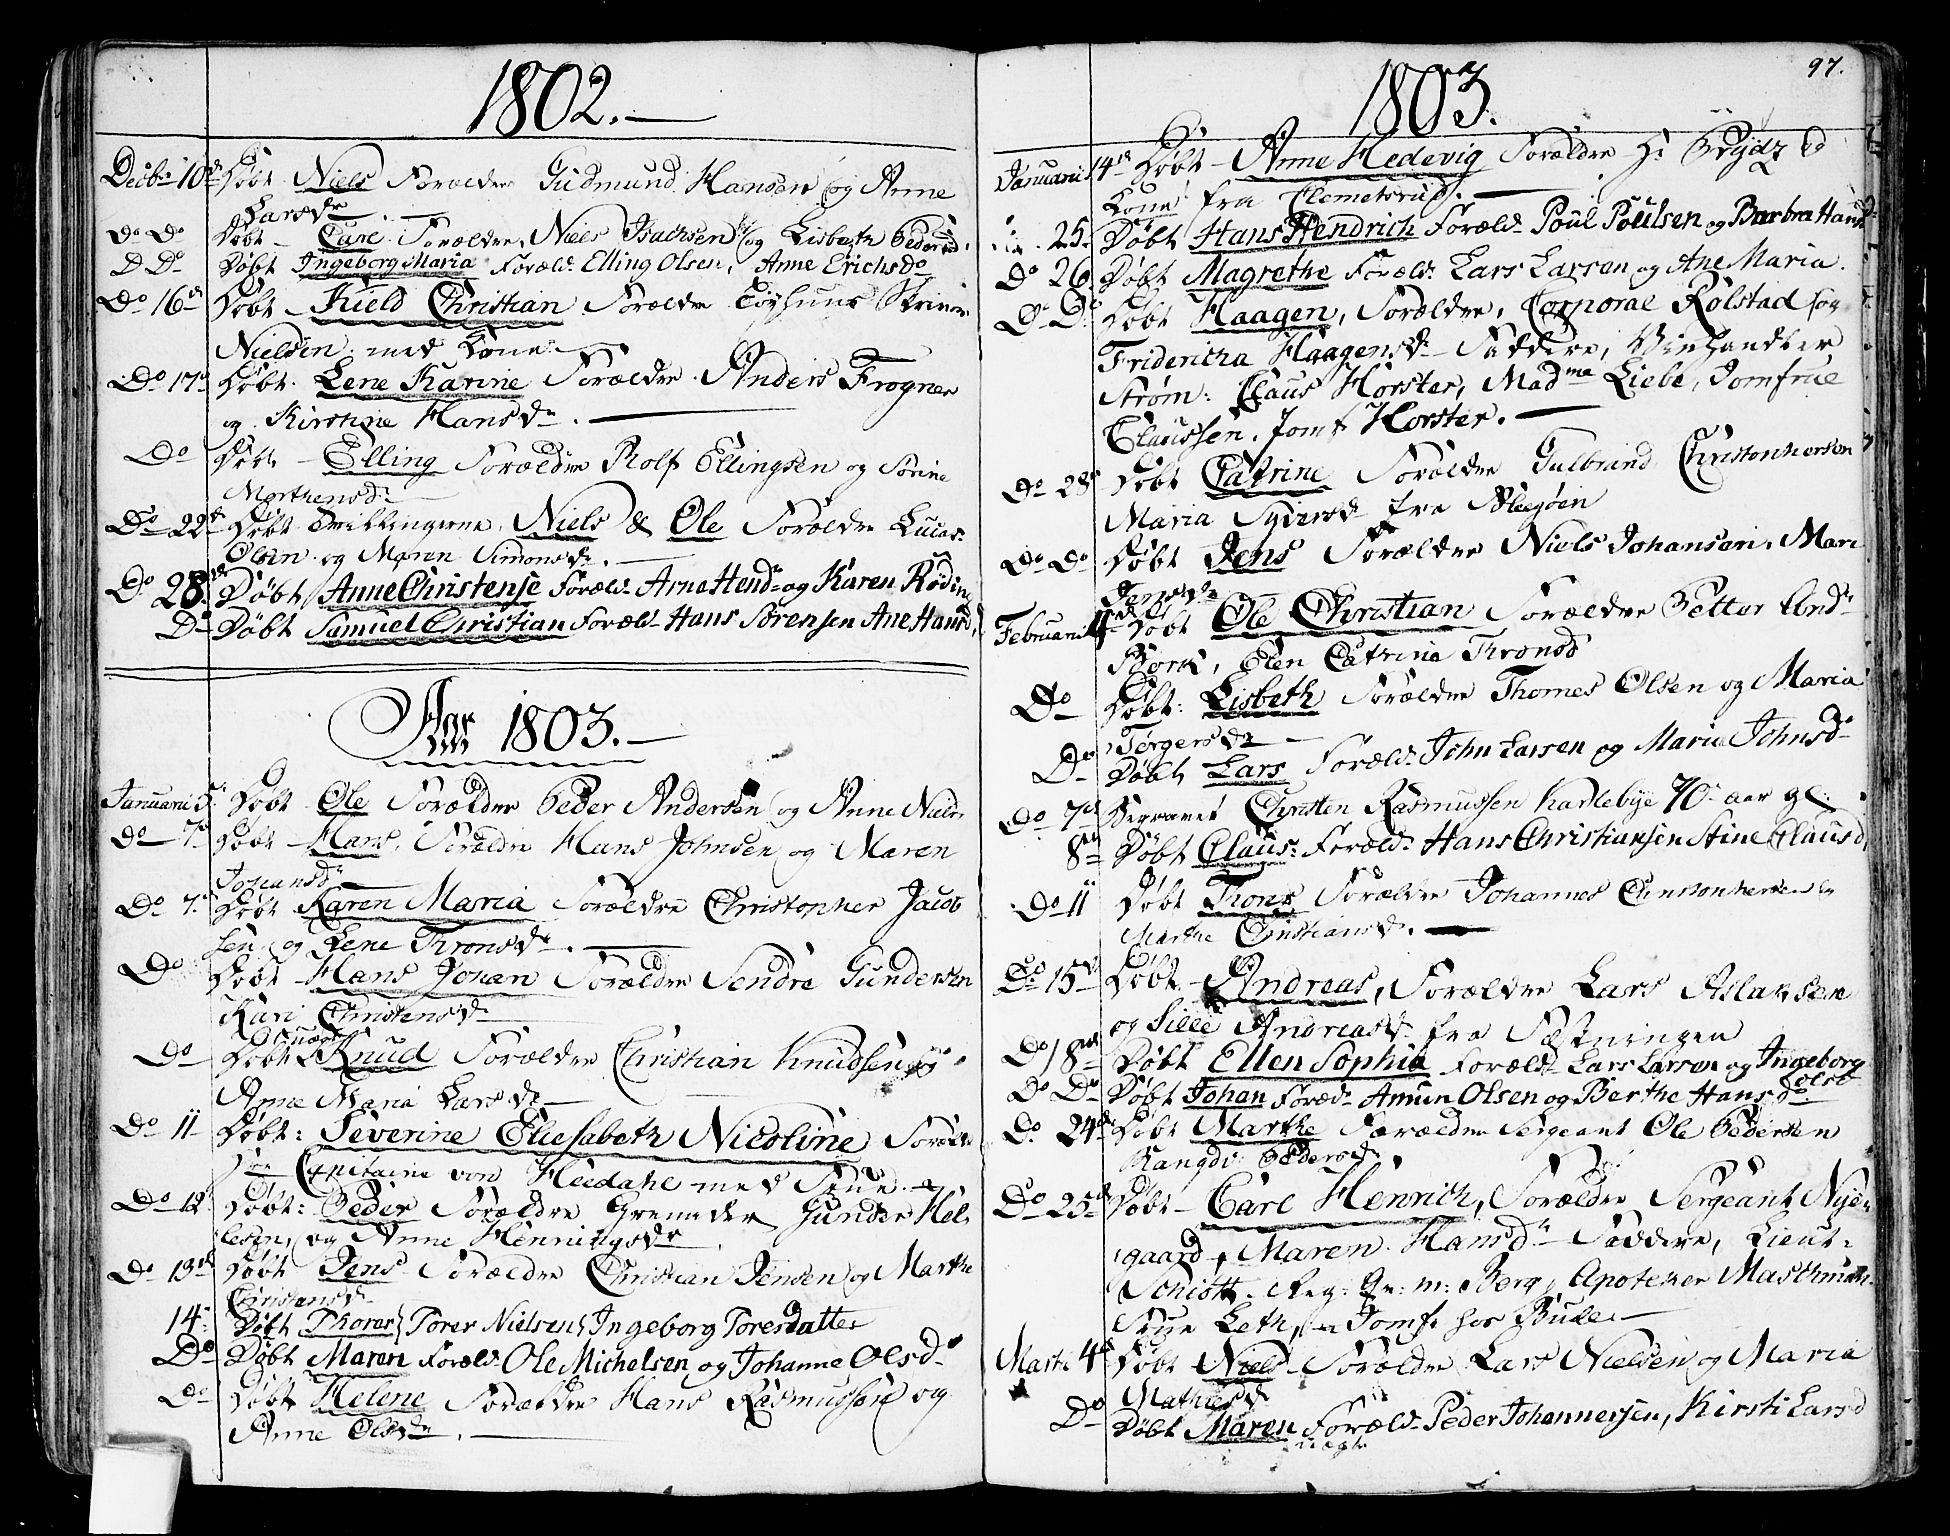 1802.
Decbr 10de Døbt Niels Forældre Gudmund Hansen og Anne
Larsdr
Do Do Døbt Carl Forældre, Niels Isachsen og Lisbeth Pedersd.
D Do Døbt Ingeborg Maria Foræld: Elling Olsen, Anne Erichsdr
Do 16de Døbt Kield Christian Forældre Tøyhuus Skriver
Nielsen med Kone
Do 17de Døbt Lene Karine Forældre Anders Frogner
og Kirstine Hansdr.
Do Døbt Elling Forældre Rolf Ellingsen og Sørine
Morthensdr
Do 22de Døbt Tvillingerne Niels & Ole Forældre Lucas
Olsen og Maren Simonsdr.
Do 28de Døbt Anne Christense Foræld. Arne Hendr og Karen Rødin
Do Døbt Samuel Christian Foræld. Hans Sørensen Ane Hansd.
Aar 1803.
Januarii 5te Døbt Ole Forældre Peder Andersen og Anne Niels
Do 7de Døbt Hans, Forældre Hans Johnsen og Maren
Johansdr
Do 7de Døbt Karen Maria Forældre Christopher Jacob
sen og Lene Thronsdr.
Do Døbt Hans Johan Forældre Sendre Gundersen
Kari Christensdr
uægte
Do Døbt Knud Forældre Christian Knudsen og
Anne Maria Larsdr
Do 11 Døbt: Severine Eliesabeth Nicoline Foræld
Hr Capitaine von Heidahl med Frue.
Do 12 Døbt: Peder Forældre Grenader Gunder Hel
lesen, og Anne Henningsdr
Do 13de Døbt Jens Forældre Christian Jensen og Marthe
Christensdr
14 Døbt Thorer Torer Nielsen Ingeborg Toresdatter
Do Døbt Maren Foræld. Ole Michelsen og Johanne Olsdr
Do Døbt Helene Forældre Hans Rasmussen og
Anne Olsdr.
97.
1803.
Januarii 14de Døbt Anne Hedevig Forældre Hr Brydz &
Kone fra Clemetsrud.
25 Døbt Hans Hendrich Foræld. Poul Poulsen og Barbra Hansd
Do 26 Døbt Magrethe Foræld. Lars Larsen og Ane Maria
Do Do Døbt Haagen, Forældre, Corporal Rolstad og
Fridericha Haagensdr Faddere, Viinhandler
Strøm: Claus Horster, Madme Liebe, Jomfrue
Claussen. Jomf Horster.
Do 28 Døbt Catrine Forældre Gulbrand Christophersen
Maria Syversdr fra Bleegøen
Do Do Døbt Jens Forældre Niels Johansen. Mari
Jensdr
Februarii 4de Døbt Ole Christian Forældre Petter And
Biørk, Elen Catrine Thronsd
Do Døbt. Lisbeth Forældre Thomes Olsen og Maria
Torgersdr
Do Døbt Lars Foræld. John Larsen og Maria Johnsdr
Do 7de Begravet Christen Rasmussen Karlebye 70 aar gl:
8de Døbt Claus: Foræld. Hans Christiansen Stine Clausd.
Do 11 Døbt Thore Forældre Johannes Christophersen &
Marthe Christiansdr.
Do 15de Døbt Andreas, Forældre Lars Aslaksen
og Sille Andreasdr fra Fæstningen
Do 18de Døbt Ellen Sophia Foræld. Lars Larsen og Ingeborg
Olsd
Do Do Døbt Johan Foræd. Amun Olsen og Berthe Hansdr.
Do 24de Døbt Marthe Forældre Sergeant Ole Pedersen
Rangdi Pedersdr
Do 25de Døbt Carl Henrich, Forældre Sergeant Nye-
gaard, Maren Hansdr Faddere, Lieut:
Schiøtt. Reg: Qv: m: Berg, Apoteker Masthman
Frue Leth, Jomf. hos Bull.
Martii 4de Døbt Niels Forældre Lars Nielsen og Maria
Mathiesdr
Do Døbt Maren Foræld. Peder Johannersen, Kirsti Larsd
uægte